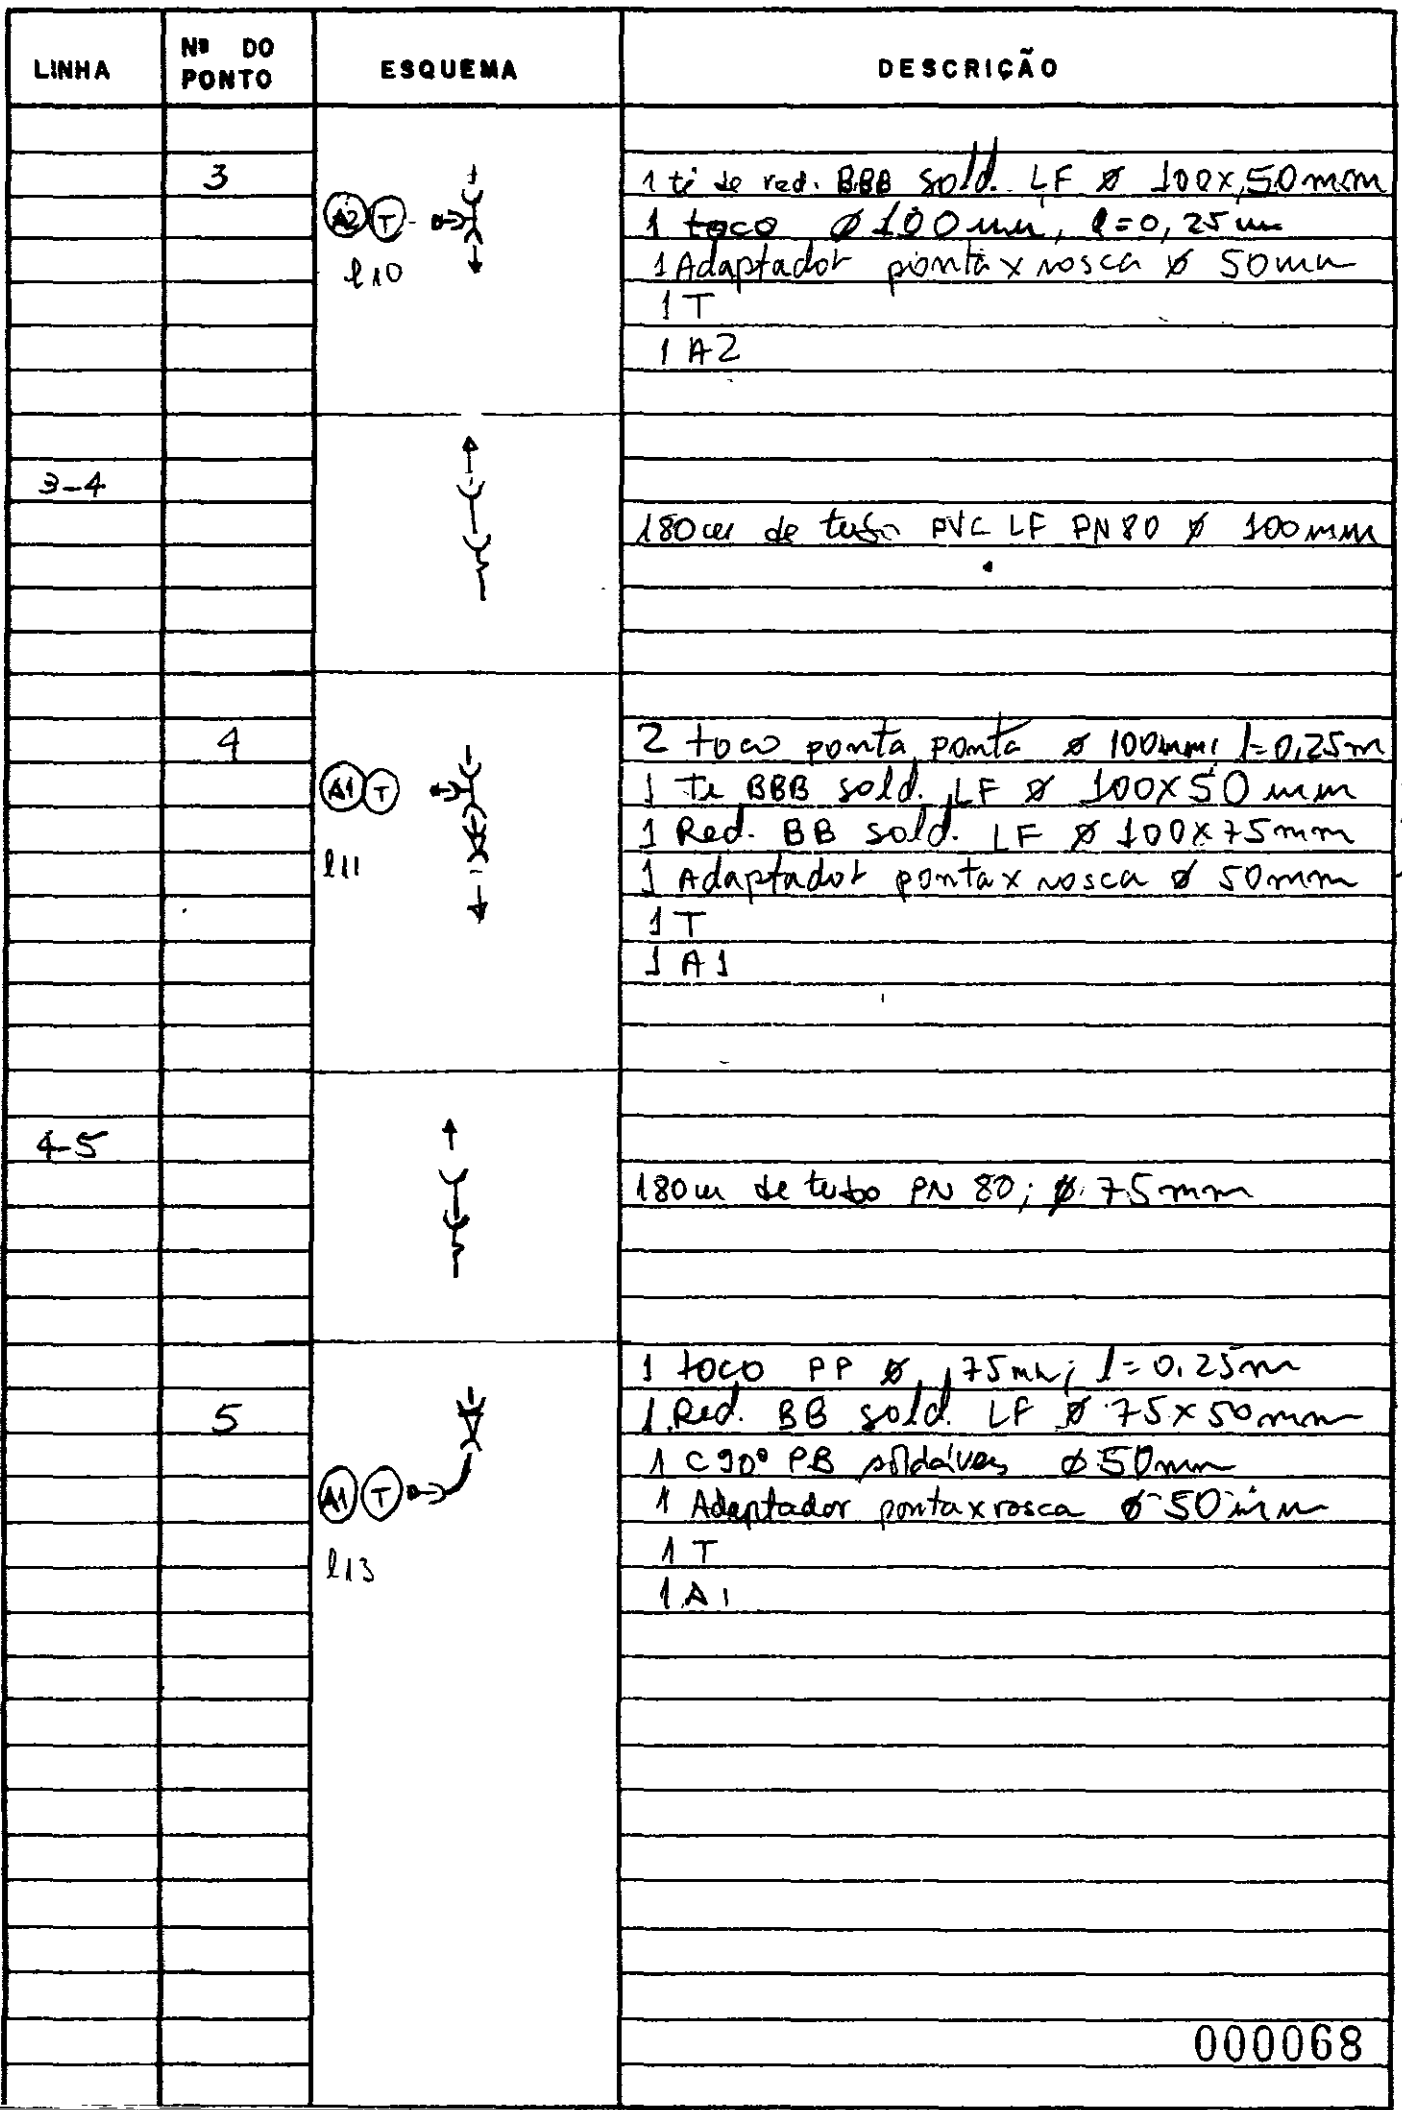 LINHA Nº DO PONTO ESQUEMA DESCRIÇÃO
3 1 tê de red. BBB sold. LF ø 100x50mm
A2 T 1 toco ø 100mm, l=0,25m
l10 1 Adaptador ponta x rosca ø 50mm
1 T
1 A2
3-4
180m de tubo PVC LF PN80 ø 100mm
4 2 toco ponta ponta ø 100mm; l=0,25m
A1 T 1 te BBB sold. LF ø 100x50mm
1 Red. BB sold. LF ø 100x75mm
l11 1 Adaptador ponta x rosca ø 50mm
1 T
1 A1
4-5
180m de tubo PN 80; ø 75mm
1 toco PP ø 75mm; l=0.25m
5 1 Red. BB sold. LF ø 75x50mm
1 C 90° PB soldáveis ø 50mm
A1 T 1 Adaptador ponta x rosca ø 50mm
l13 1 T
1 A1
000068